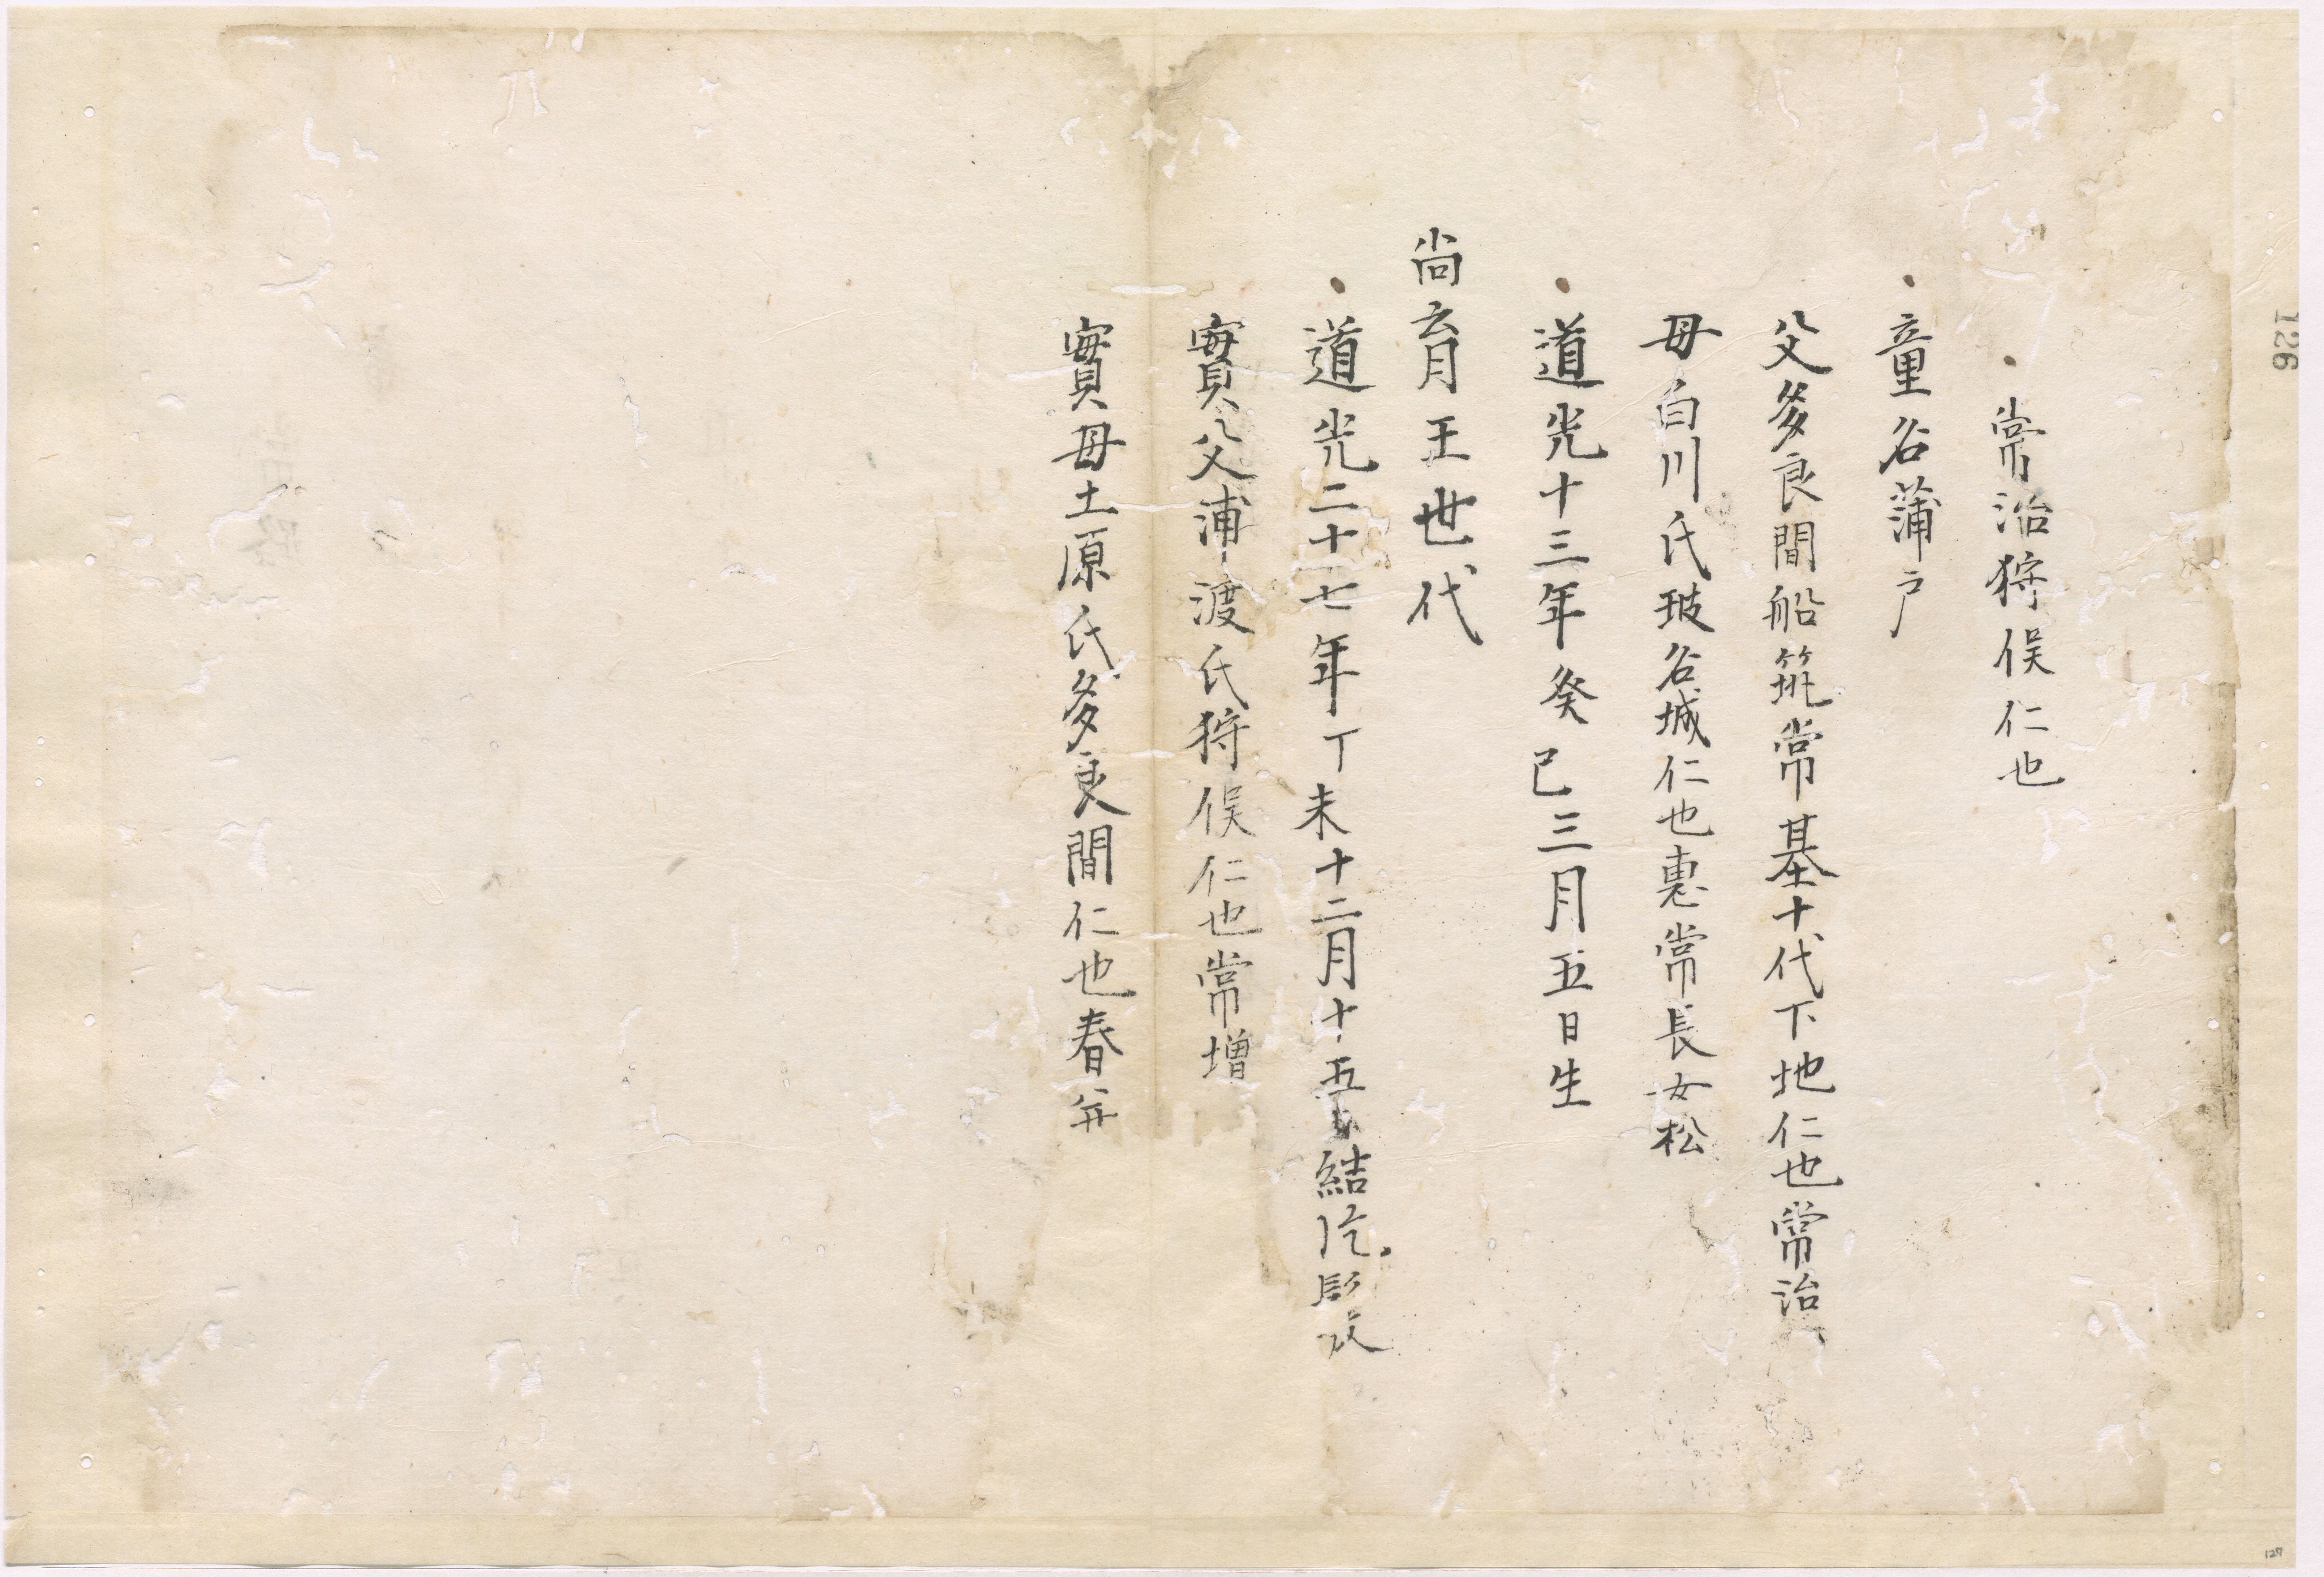 常治狩俣仁也
童名蒲戸
父多良間船筑常基十代下地仁也常治
母白川氏玻名城仁也恵常長女松
道光十三年癸巳三月五日生
尚育王世代
道光二十七年丁未十二月十五 結
實父浦渡氏狩俣仁也常増
實母土原氏多良間仁也春
126
127